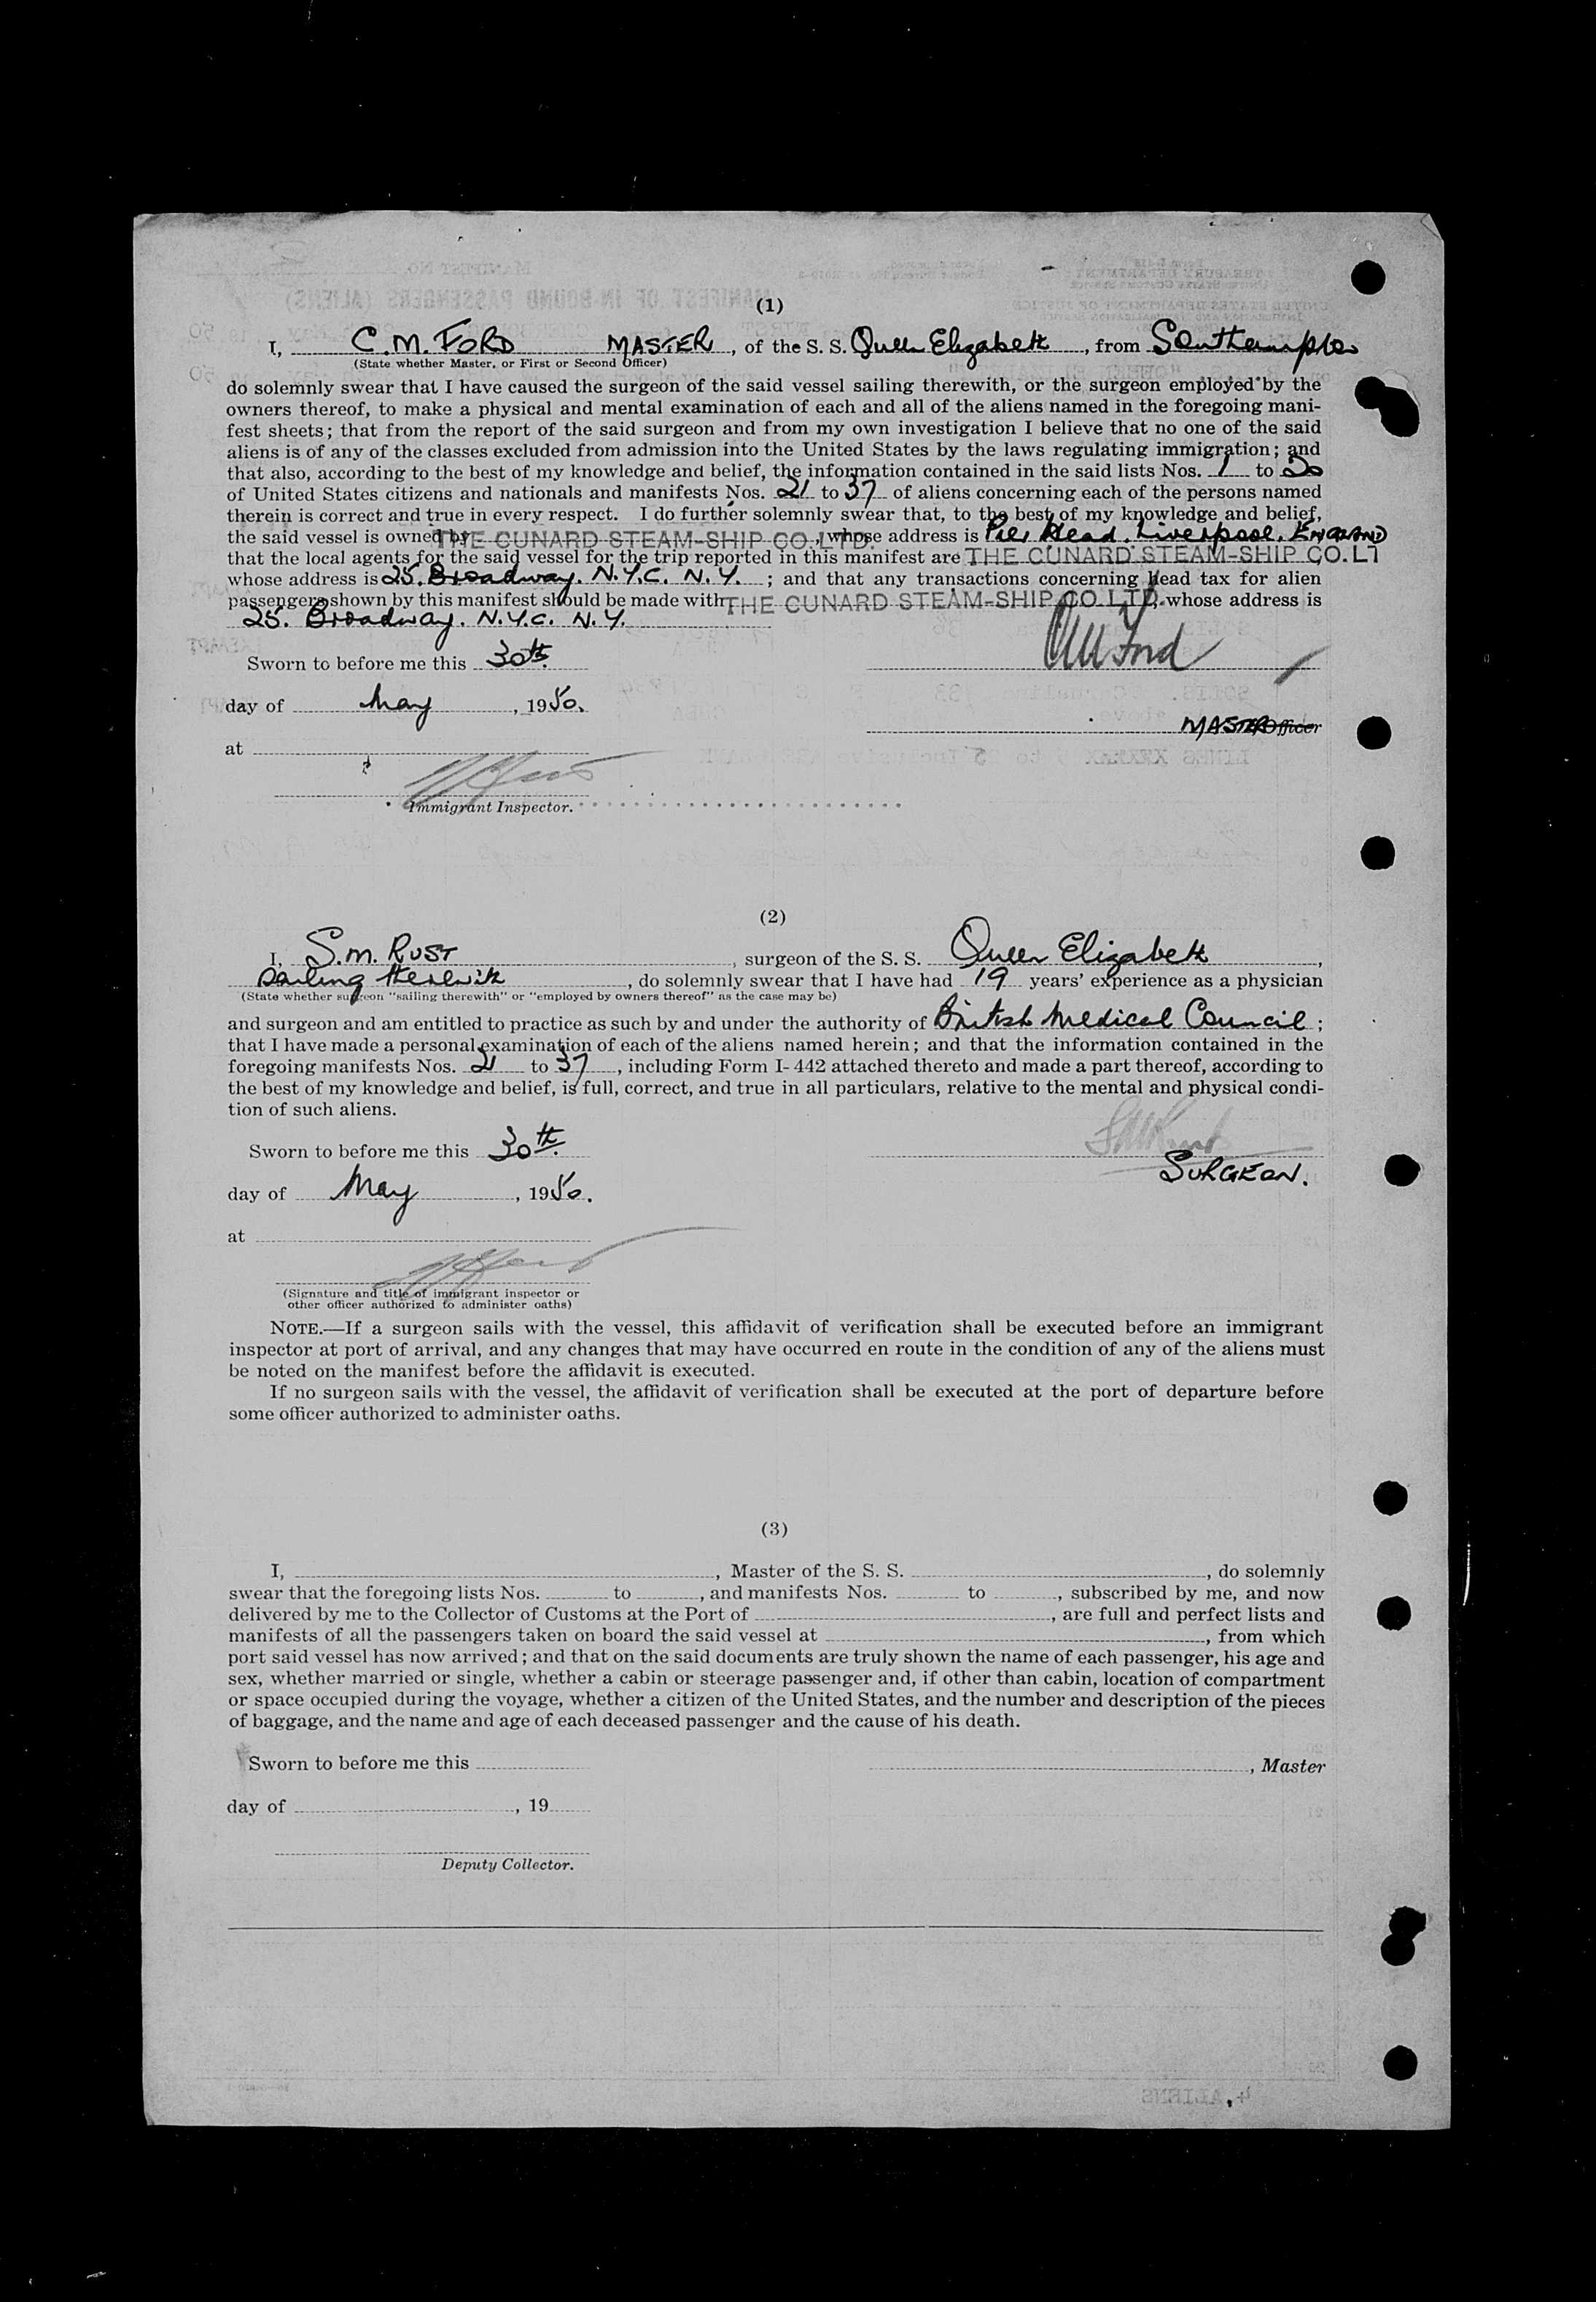 (1)
I, C.M. FORD MASTER, of the S. S. Queen Elizabeth, from Southampton
(State whether Master, or First or Second Officer)
do solemnly swear that I have caused the surgeon of the said vessel sailing therewith, or the surgeon employed by the
owners thereof, to make a physical and mental examination of each and all of the aliens named in the foregoing mani-
fest sheets; that from the report of the said surgeon and from my own investigation I believe that no one of the said
aliens is of any of the classes excluded from admission into the United States by the laws regulating immigration; and
that also, according to the best of my knowledge and belief, the information contained in the said lists Nos. 1 to 20
of United States citizens and nationals and manifests Nos. 21 to 37 of aliens concerning each of the persons named
therein is correct and true in every respect. I do further solemnly swear that, to the best of my knowledge and belief,
the said vessel is owned by THE CUNARD STEAM-SHIP CO. LTD., whose address is Pier Head. Liverpool. ENGLAND
that the local agents for the said vessel for the trip reported in this manifest are THE CUNARD STEAM-SHIP CO. LT
whose address is 25. Broadway. N.Y.C. N.Y. ; and that any transactions concerning head tax for alien
passengers shown by this manifest should be made with THE CUNARD STEAM-SHIP CO. LTD. whose address is
25. Broadway. N.Y.C. N.Y.
CM Ford
Sworn to before me this 30th.
day of May, 1950.
MASTER Officer
at
Immigrant Inspector.
(2)
I, S.M. RUST, surgeon of the S. S. Queen Elizabeth,
Sailing therewith, do solemnly swear that I have had 19 years' experience as a physician
(State whether surgeon "sailing therewith" or "employed by owners thereof" as the case may be)
and surgeon and am entitled to practice as such by and under the authority of British Medical Council ;
that I have made a personal examination of each of the aliens named herein; and that the information contained in the
foregoing manifests Nos. 21 to 37, including Form I-442 attached thereto and made a part thereof, according to
the best of my knowledge and belief, is full, correct, and true in all particulars, relative to the mental and physical condi-
tion of such aliens.
SM Rust
Sworn to before me this 30th.
SURGEON.
day of May, 1950.
at
(Signature and title of immigrant inspector or
other officer authorized to administer oaths)
NOTE.—If a surgeon sails with the vessel, this affidavit of verification shall be executed before an immigrant
inspector at port of arrival, and any changes that may have occurred en route in the condition of any of the aliens must
be noted on the manifest before the affidavit is executed.
If no surgeon sails with the vessel, the affidavit of verification shall be executed at the port of departure before
some officer authorized to administer oaths.
(3)
I, , Master of the S. S. , do solemnly
swear that the foregoing lists Nos. to , and manifests Nos. to , subscribed by me, and now
delivered by me to the Collector of Customs at the Port of , are full and perfect lists and
manifests of all the passengers taken on board the said vessel at , from which
port said vessel has now arrived; and that on the said documents are truly shown the name of each passenger, his age and
sex, whether married or single, whether a cabin or steerage passenger and, if other than cabin, location of compartment
or space occupied during the voyage, whether a citizen of the United States, and the number and description of the pieces
of baggage, and the name and age of each deceased passenger and the cause of his death.
Sworn to before me this
, Master
day of , 19
Deputy Collector.
4, ALIENS